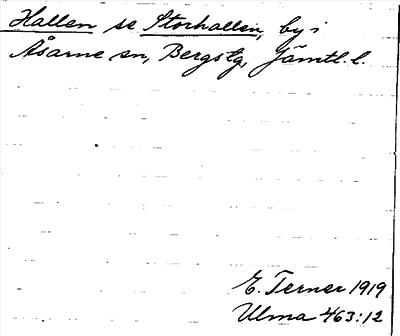 Hallen se Storhallen, by i
Åsarne sn, Bergs tg, Jämtl. l.
E. Terner 1919
Ulma 463:12